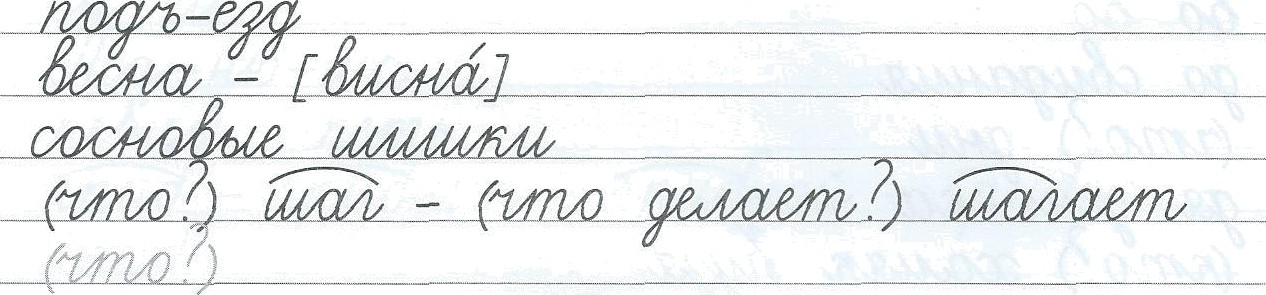 подъ-езд
весна - [висна́]
сосновые шишки
(что?) шаг - (что делает?) шагает
(что?)